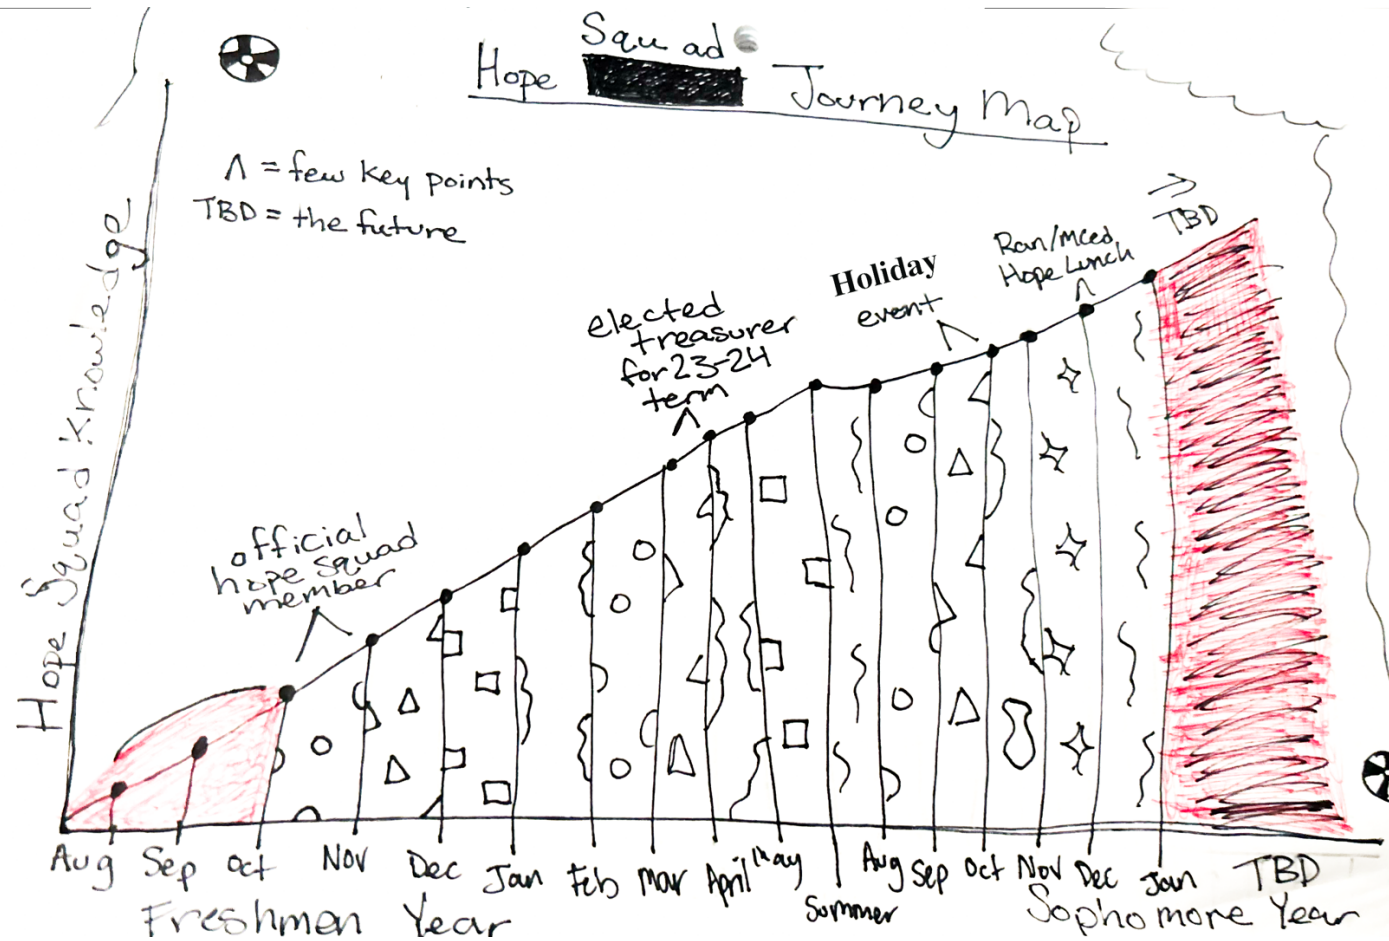 Squad
Hope Journey Map
Λ = few key points
TBD = the future
Hope Squad Knowledge
official
hope squad
member
elected
treasurer
for 23-24
term
Holiday
event
Ran/MCed
Hope Lunch
TBD
Aug Sep Oct Nov Dec Jan Feb Mar April May Summer Aug Sep Oct Nov Dec Jan TBD
Freshmen Year Sophomore Year